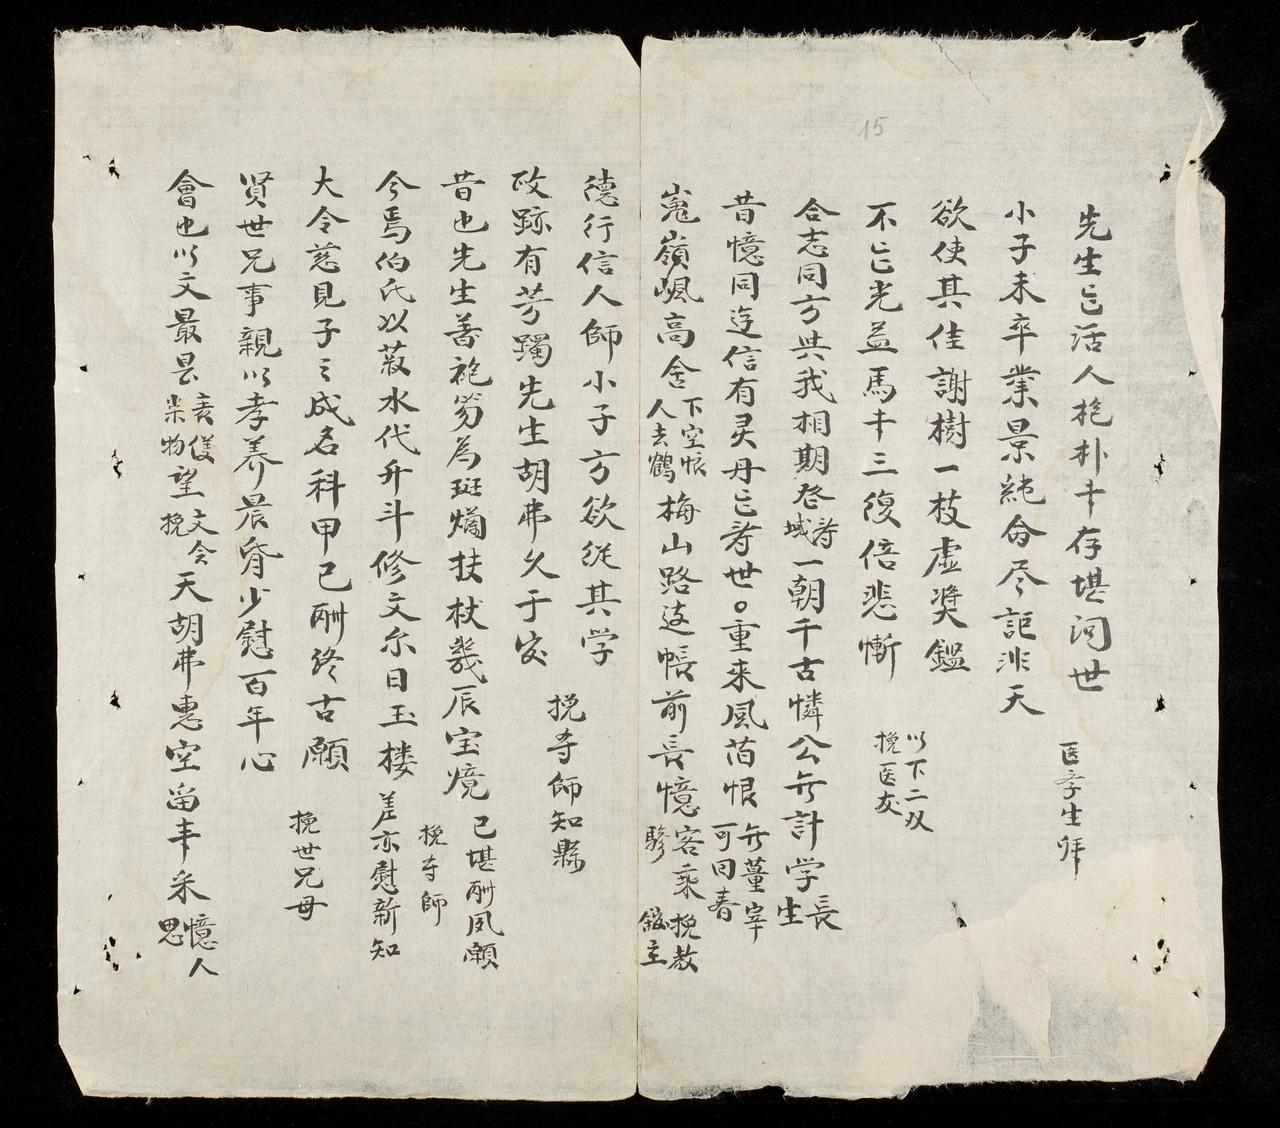 15
先生亡活人抱朴才存堪问世
医学生拜
小子未卒業景純命尽詎非天
欲使其佳謝樹一枝虚奨鑑
以下二双
挽医友
不亡光益馬才三復倍悲慚
合志同方共我相期登寿域一朝千古憐公無計学長生
昔憶同迍信有灵丹亡寿世。重来風苗恨無董宰可回春
嵬嶺颯高舍下空悵人去鶴梅山路迓帳前長憶客乘驂挽教
徳行信人師小子方欲從其学
挽寺師知縣
攺跡有芳躅先生胡弗久于官
昔也先生善袍笏為斑斕扶杖幾辰宝境已堪酬夙願
挽寺師
今焉伯氏以菽水代升斗修文尔日玉楼差亦慰新知
大令慈見子之成名科甲已酬终古願
挽世兄母
贤世兄事親以孝养晨昏少慰百年心
會也以文最是物望文会挽天胡弗惠空留丰采憶人思